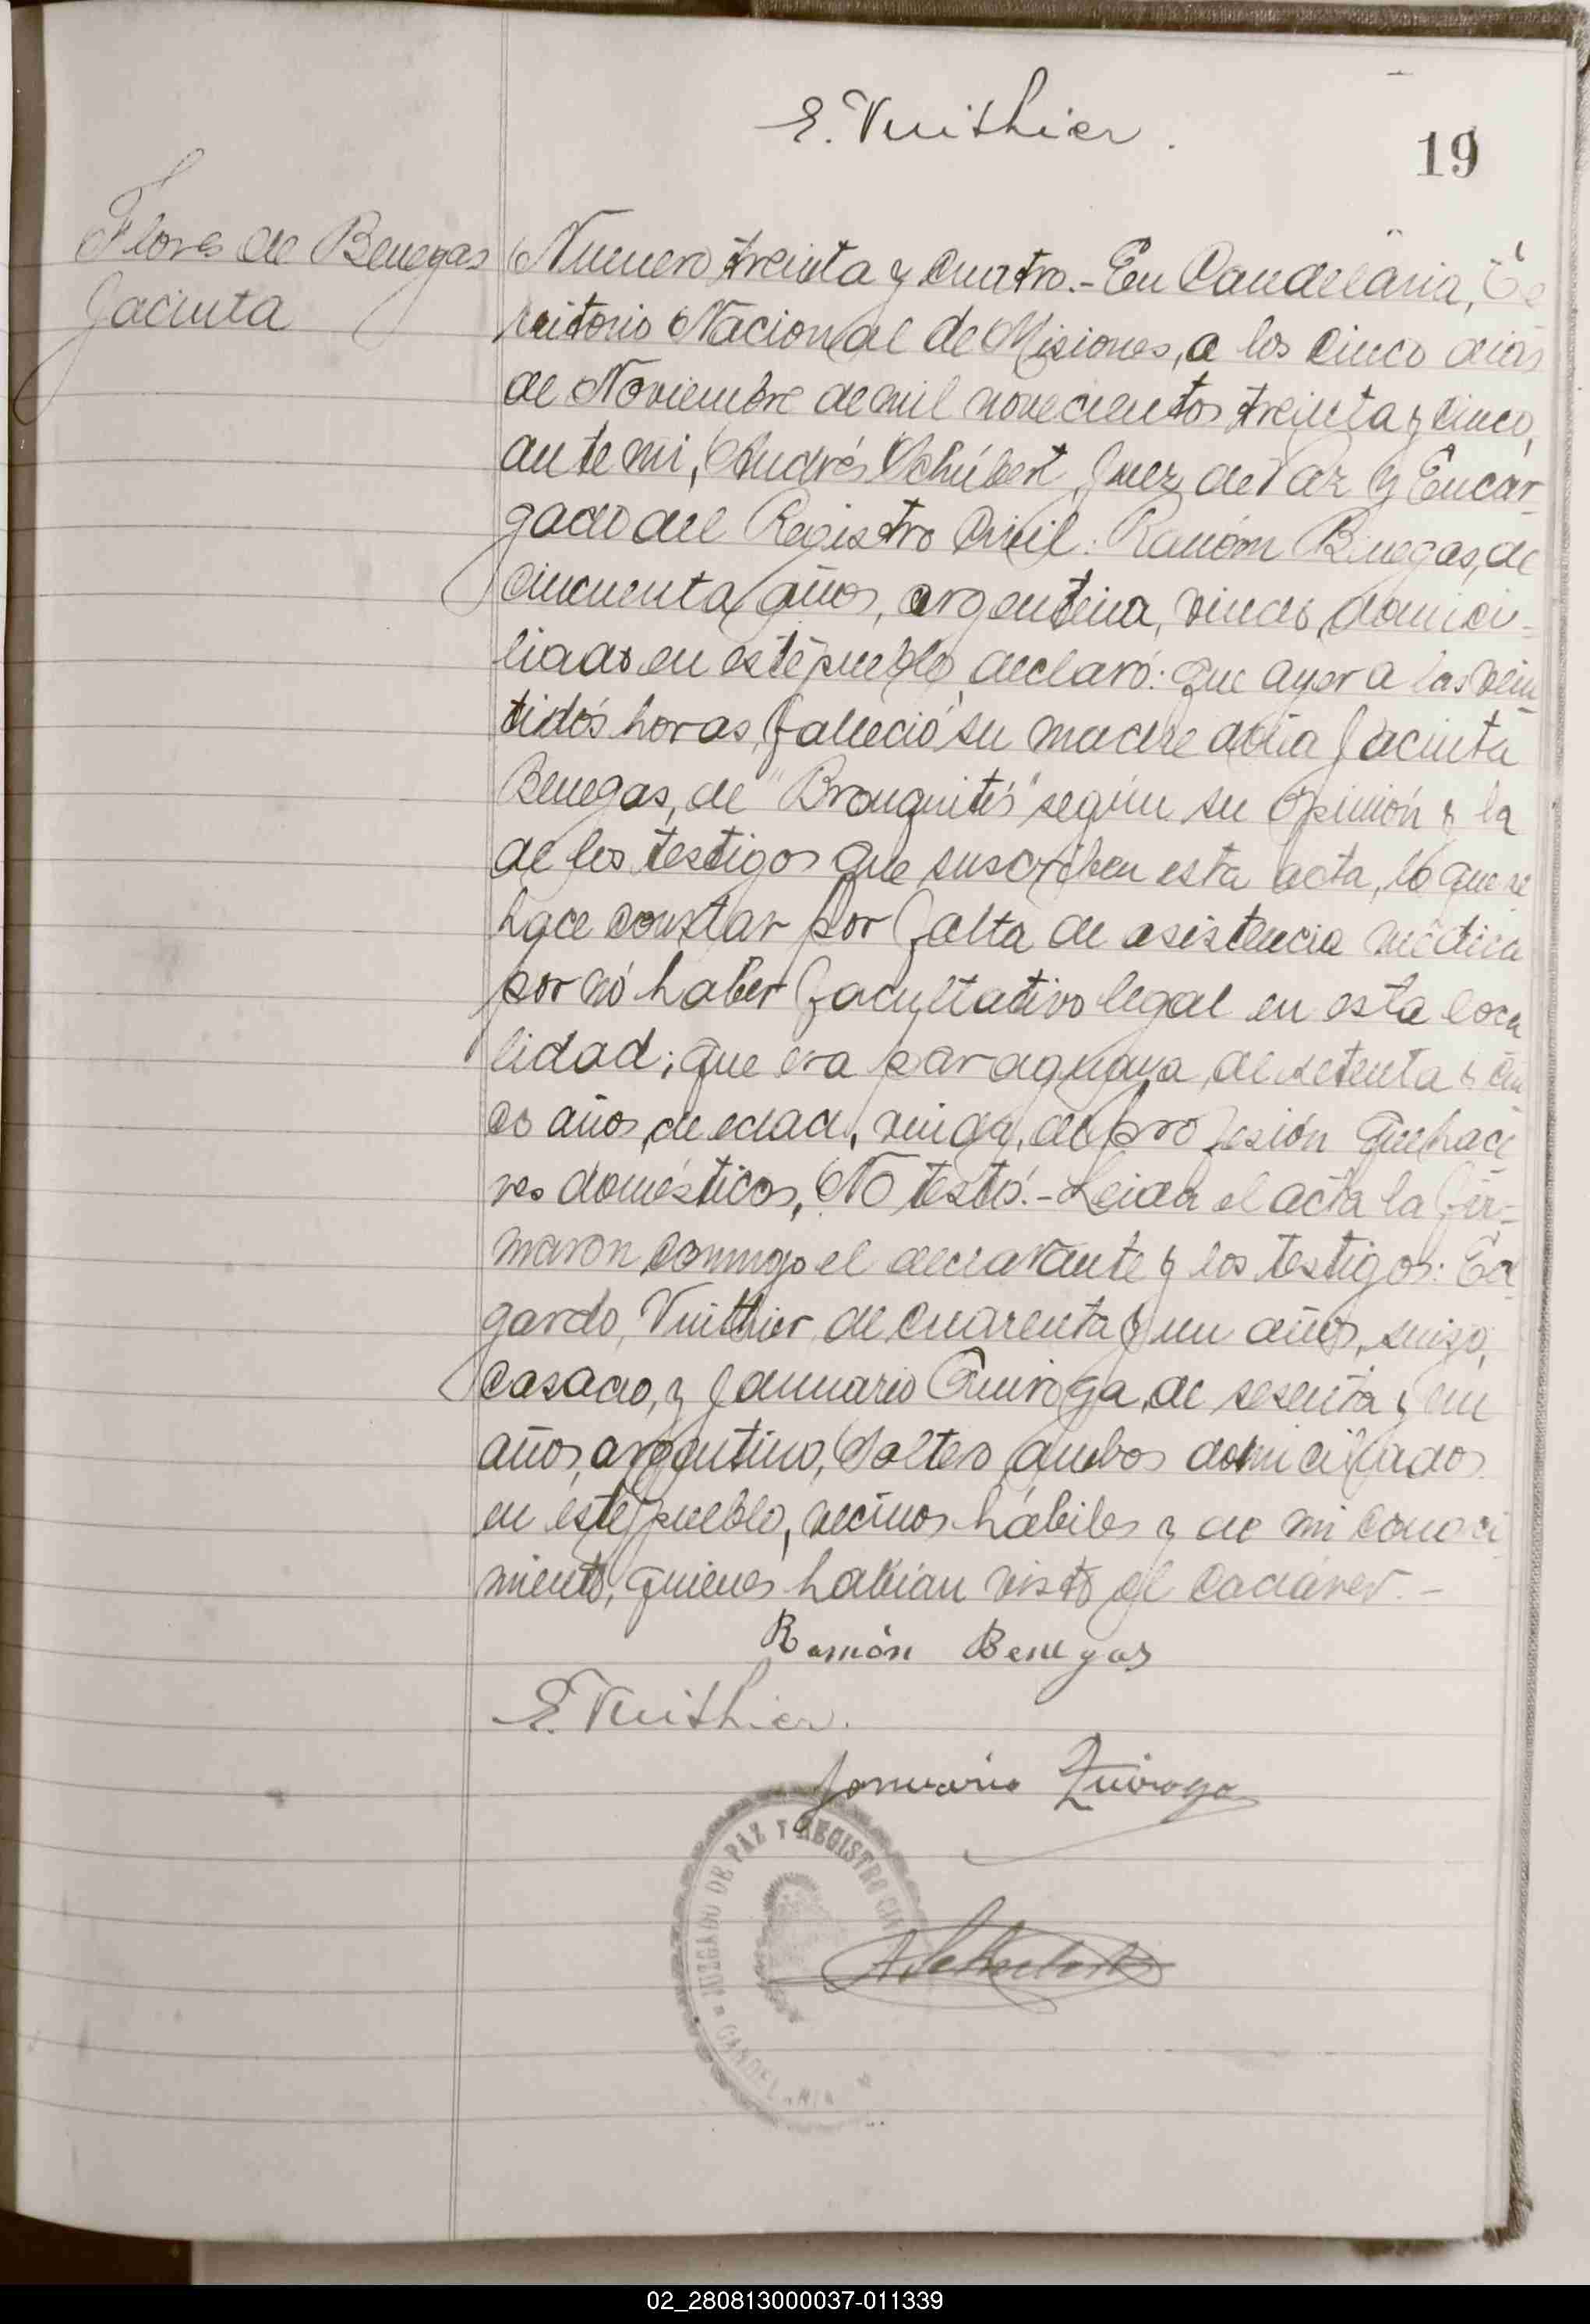 E. Vuithier.
19
Flores de Benegas
Jacinta
Numero treinta y cuatro.- En Candelaria, Te
rritorio Nacional de Misiones, a los cinco dias
de Noviembre de mil novecientos treinta y cinco,
ante mi, Andrés Schúbert, Juez de Paz y Encar-
gado del Registro Civil: Ramón Benegas, de
cincuenta años, argentino, viudo, domici-
liado en este pueblo, declaró: que ayer a las vein
tidós horas, falleció su madre doña Jacinta
Benegas, de "Bronquitis" según su opinión y la
de los testigos que suscriben esta acta, lo que se
hace constar por falta de asistencia médica
por nó haber facultativo legal en esta loca
lidad; que era paraguaya, de setenta y cin
co años, de edad, viuda, de profesión Quehace
res domésticos, No testó.- Leida el acta la fir-
maron conmigo el declarante y los testigos: Ed-
gardo, Vuithier de cuarenta y un años, suizo,
casado, y Januario Quiroga, de sesenta y un
años, argentino, soltero, ambos domiciliados
en este pueblo, vecinos hábiles y de mi conoci
miento, quienes habian visto el cadáver.-
Ramón Benegas
E. Vuithier.
Januario Quiroga
JUZGADO DE PAZ Y REGISTRO CIVIL
CANDELARIA
A. Schubert
02_280813000037-011339